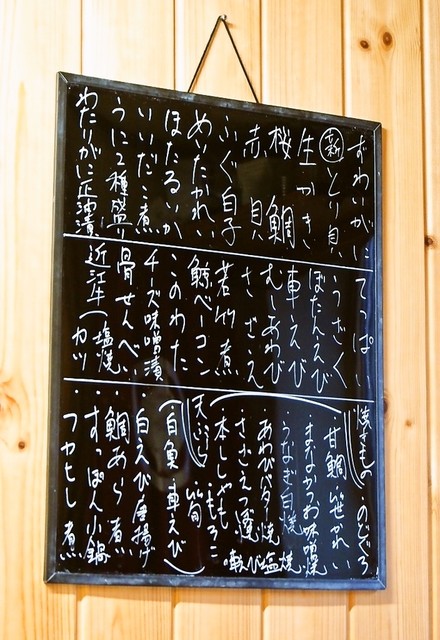 ずわいがに
新 とり貝
生かき
桜鯛
赤貝
ふぐ白子
めいたかれい
ほたるいか
いいだこ煮
うに2種盛り
わたりがに正油漬
てっぱい
うざく
ぼたんえび
車えび
むしあわび
さざえ
若竹煮
鯨ベーコン
このわた
チーズ味噌漬
骨せんべい
近江牛(塩焼
カツ
焼きもの
・のどぐろ
・甘鯛
・笹かれい
・まながつお味噌漬
・うなぎ白焼
・あわびバタ焼
・車えび塩焼
・さざえつぼ焼
・本ししゃも
・もろこ
天ぷら
・筍
(白魚・車えび)
・白えび唐揚げ
・鯛あら煮
・すっぽん小鍋
・フカヒレ煮